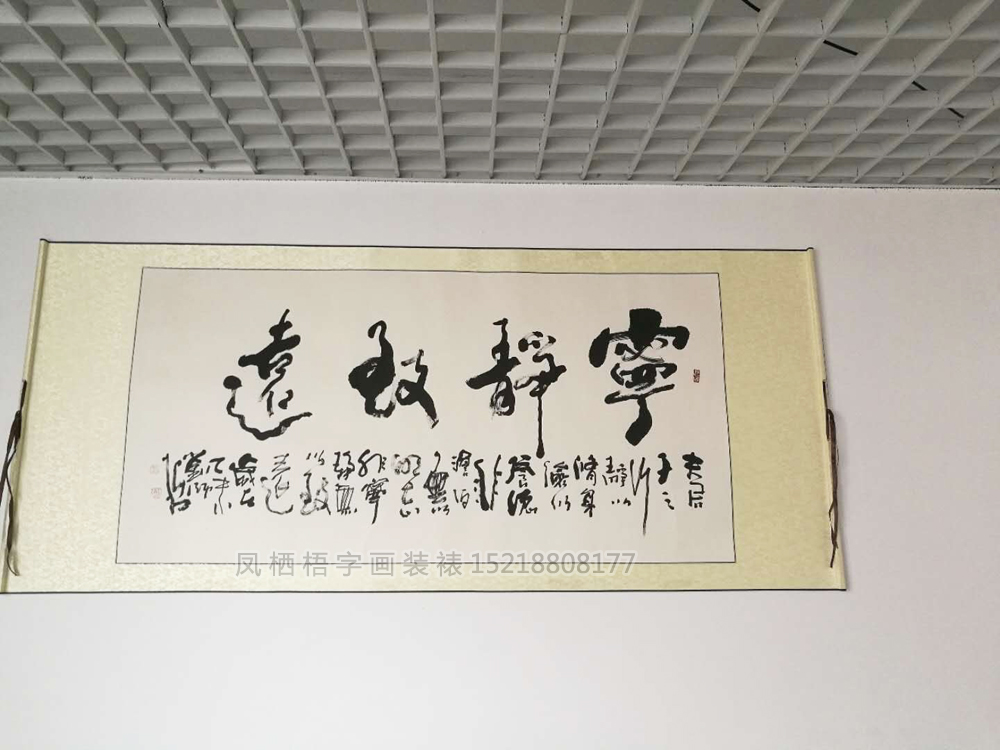 寧靜致遠
夫君
子之
行
靜以
脩身
儉以
養德
非
澹泊
無以
明志
非寧
靜無
以致
遠
乙未
凤栖梧字画装裱15218808177